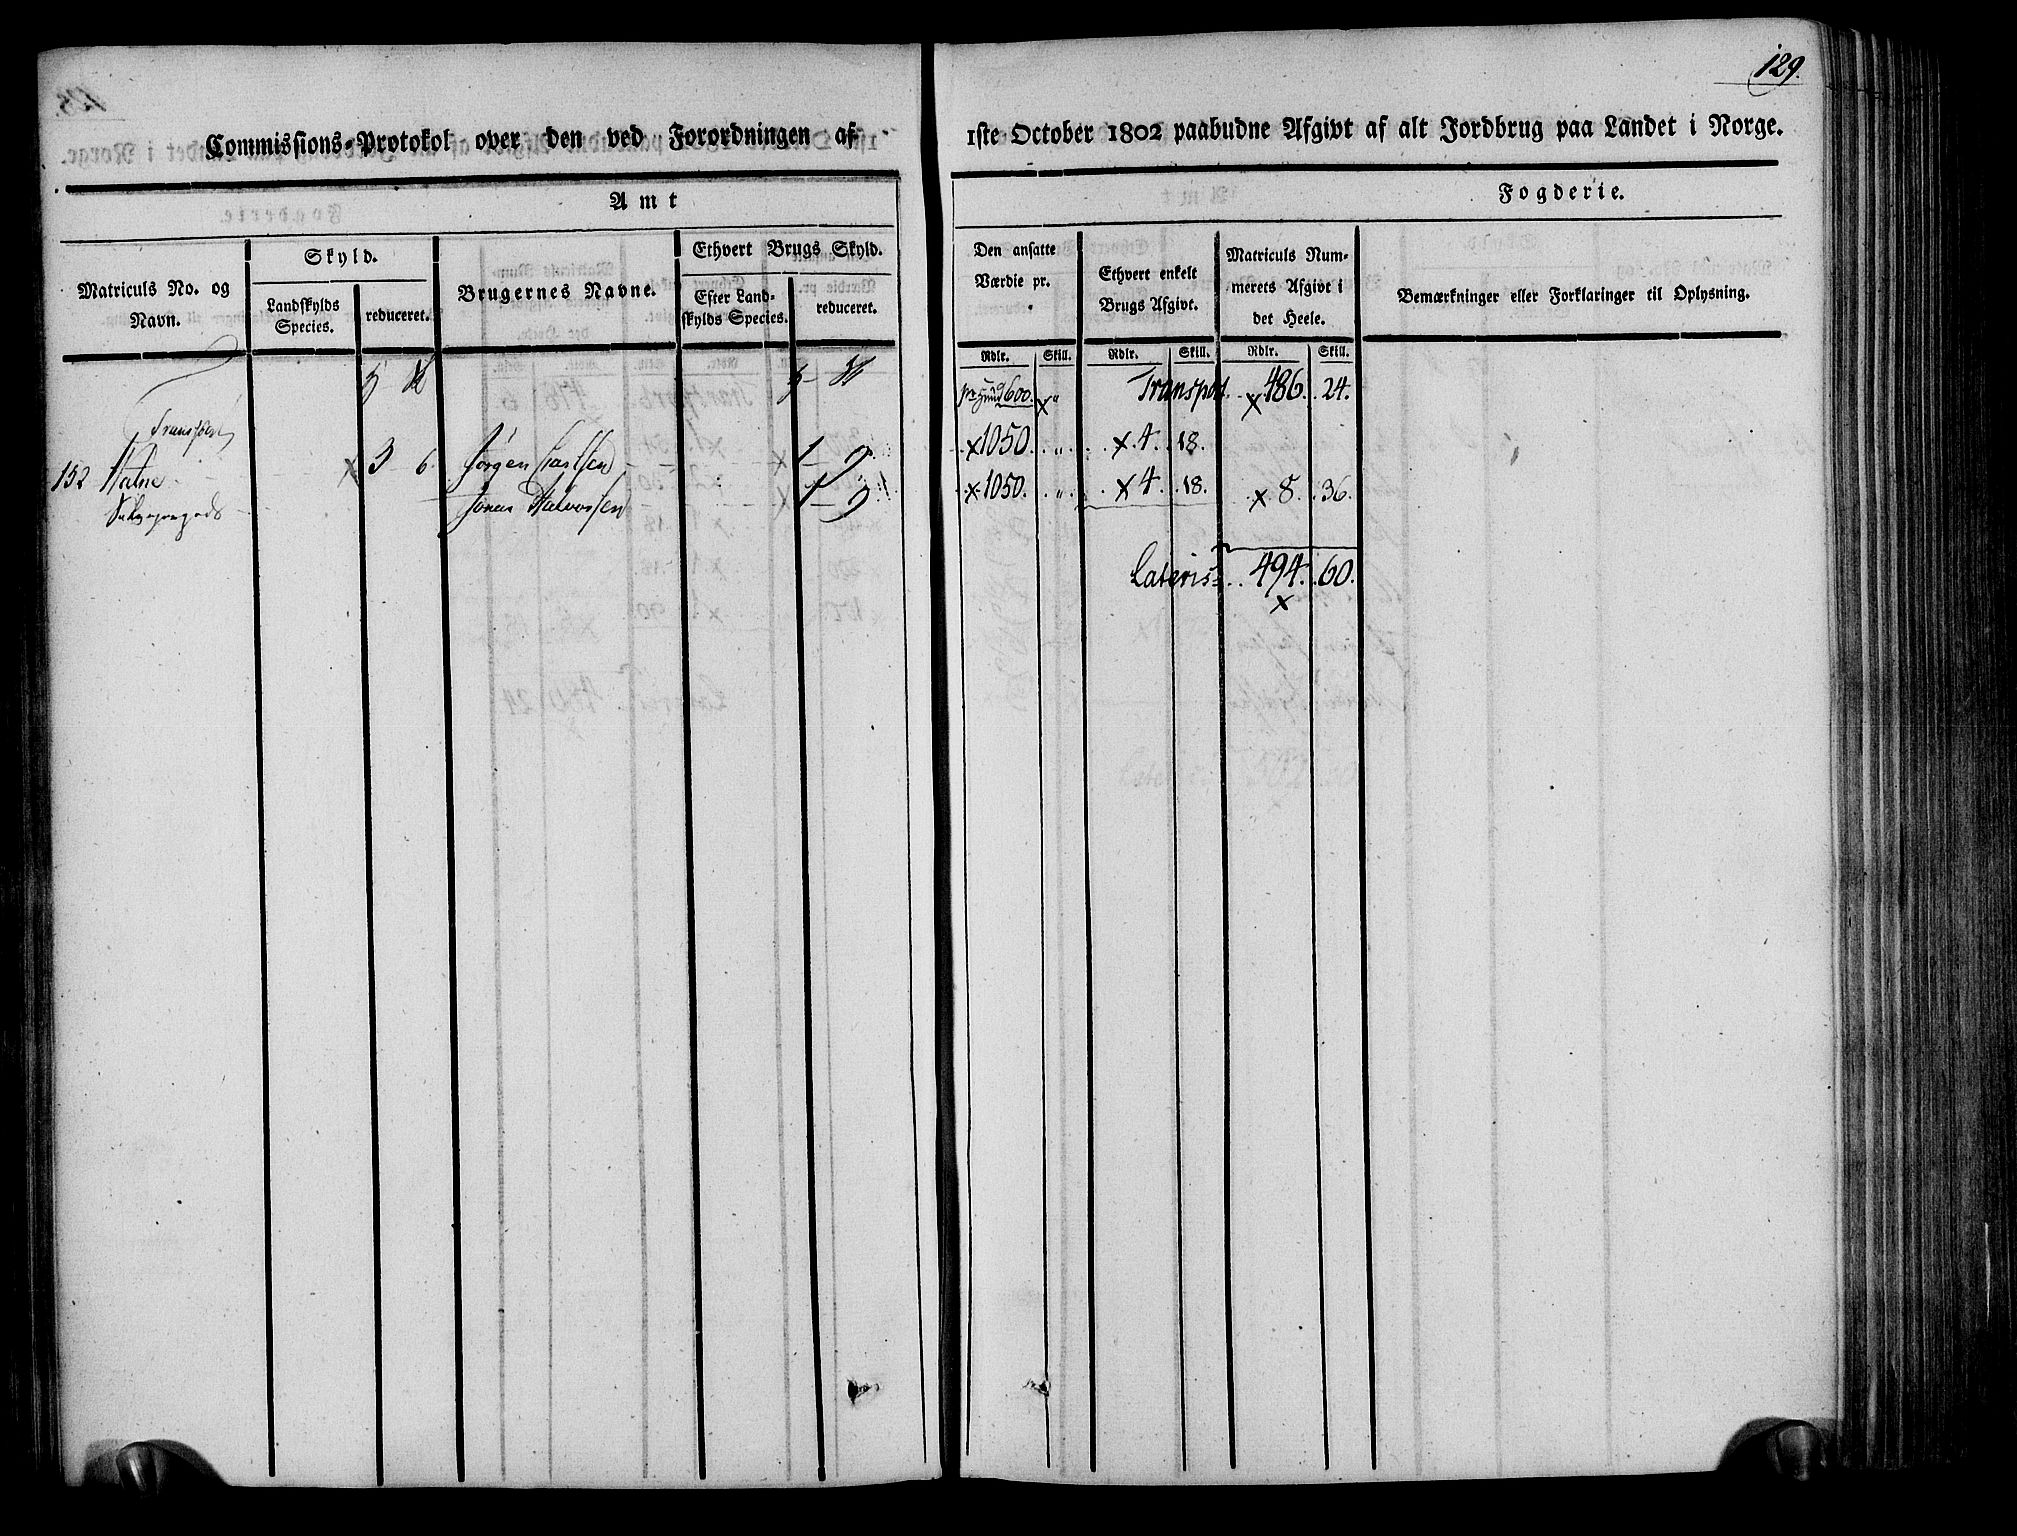 129.
Commissions-Protokol over den ved Forordningen af
1ste October 1802 paabudne Afgivt af alt Jordbrug paa Landet i Norge.
Amt
Fogderie.
Matriculs No. og Navn.
Skyld.
Landskylds Species.
reduceret.
Brugernes Navne.
Ethvert Brugs Skyld.
Efter Landskylds Species.
reduceret.
Den ansatte Værdie pr.
Ethvert enkelt Brugs Afgivt.
Matriculs Nummerets Afgivt i det Heele.
Bemærkninger eller Forklaringer til Oplysning.
Rdlr. Skill. Rdlr. Skill. Rdlr. Skill.
600. " Transport 486. 24.
Transport
152 3 6 Jørgen 1 9 1050. " 4. 18.
1 9 1050. " 4. 18. 8. 36.
Lateris 494. 60.